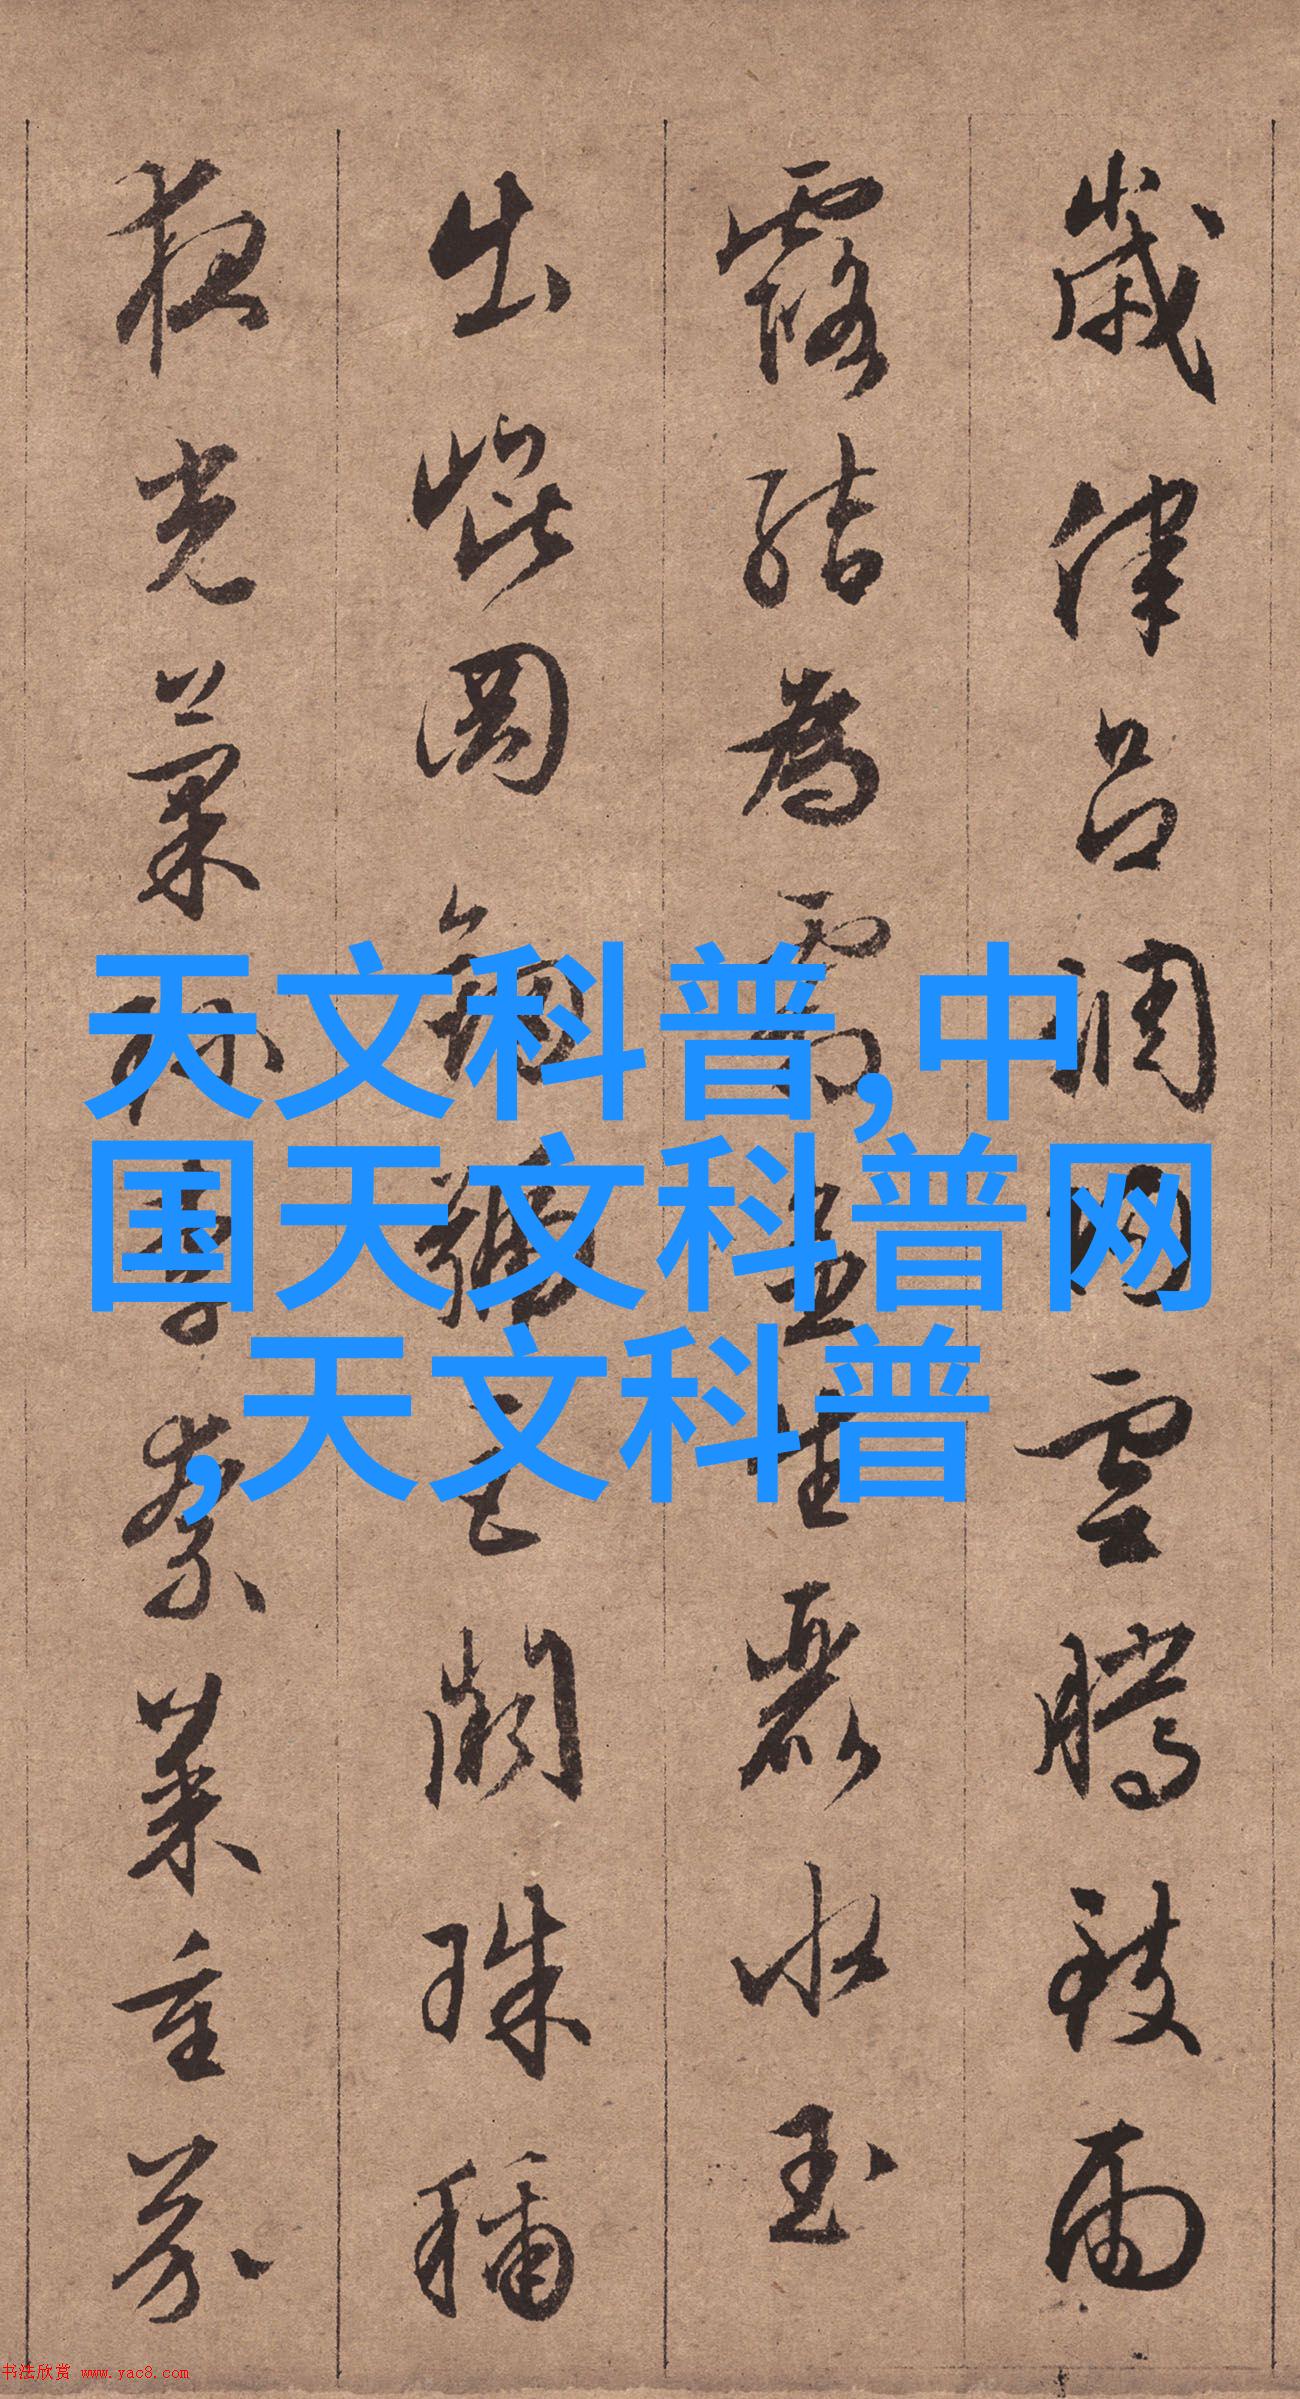 歲律呂調陽雲騰致雨
露結為霜金生麗水玉
出崐岡劍號巨闕珠稱
夜光菓珍李柰菜重芥
天文科普,中
国天文科普网
,天文科普
书法欣赏 www.yac8.com